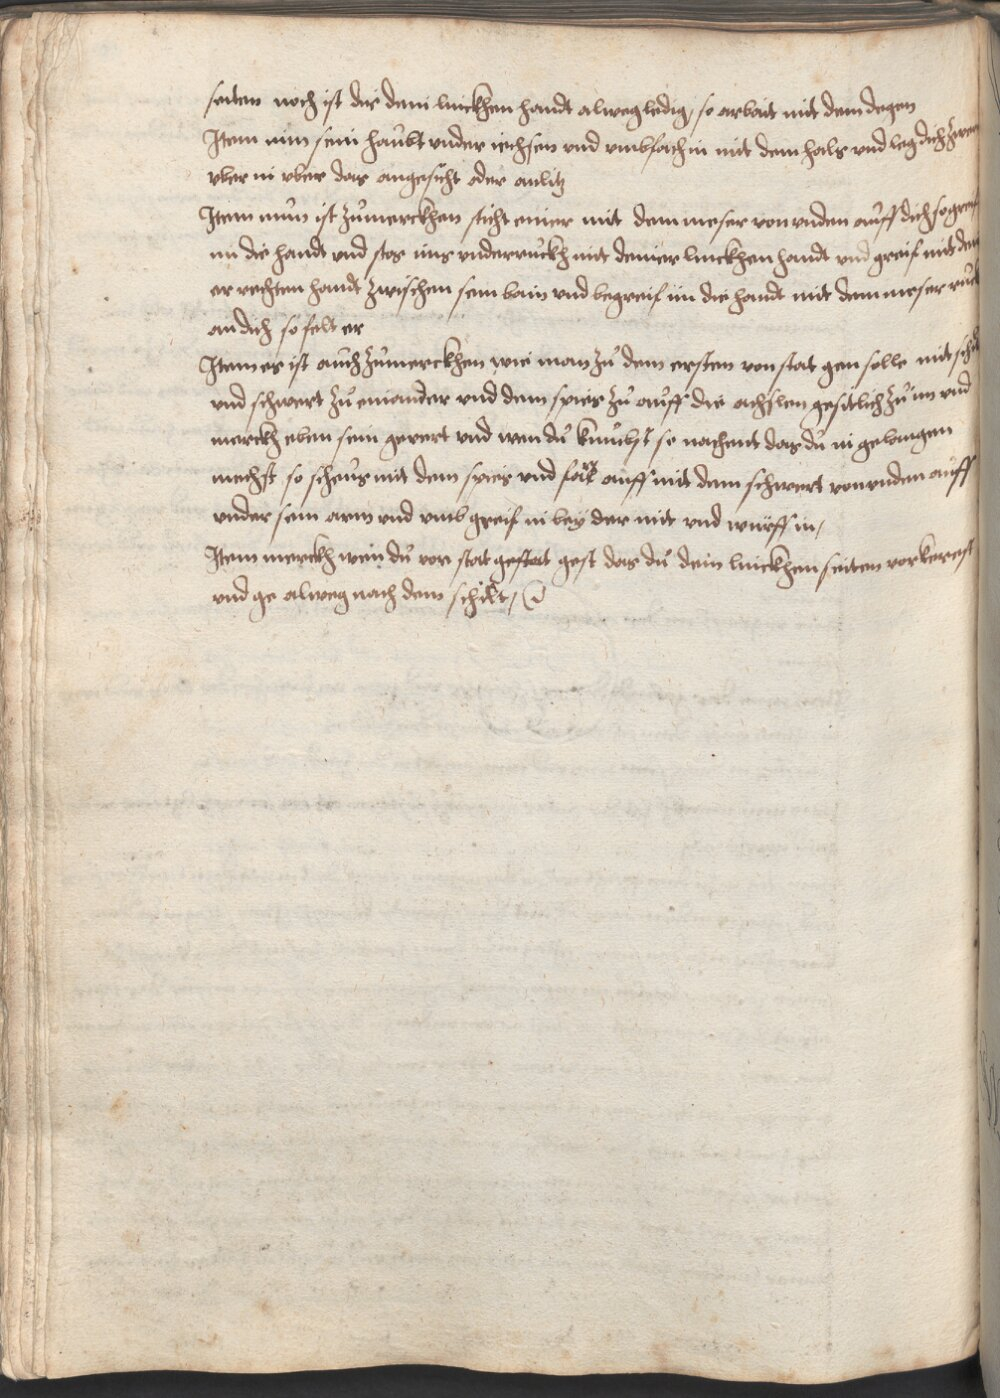 seiten noch ist dir dein linckhen handt alweg ledig, so arbait mit dem degen
Item nim sein haubt vnder iechsen vnd vmbfach in mit dem hals vnd leg dich
vber in vber das angesicht oder anlitz
Item nun ist zumerckhen sticht einer mit dem meser von vnden auff dich so greif
im die handt vnd stos ims vnderruckh mit deiner linckhen handt vnd greif mit
er rechten handt zwischen sein bain vnd begreif im die handt mit dem meser
an dich so felt er
Item es ist auch zumerckhen wie man zu dem ersten von stat gen solle mit
vnd schwert zu einander vnd dem spies zu auff die achslen gesitlich zu im vnd
merckh eben sein gevert vnd wen du kumbst so nachent das du in gelangen
mechst so scheus mit dem spies vnd far auff mit dem schwert von vnden auff
vnder sein arm vnd vmb greif in bey der mit vnd würff in,
Item merckh wen du von stat gestat gest das du dein linckhen seiten vorkerest
vnd ge alweg nach dem schilt,